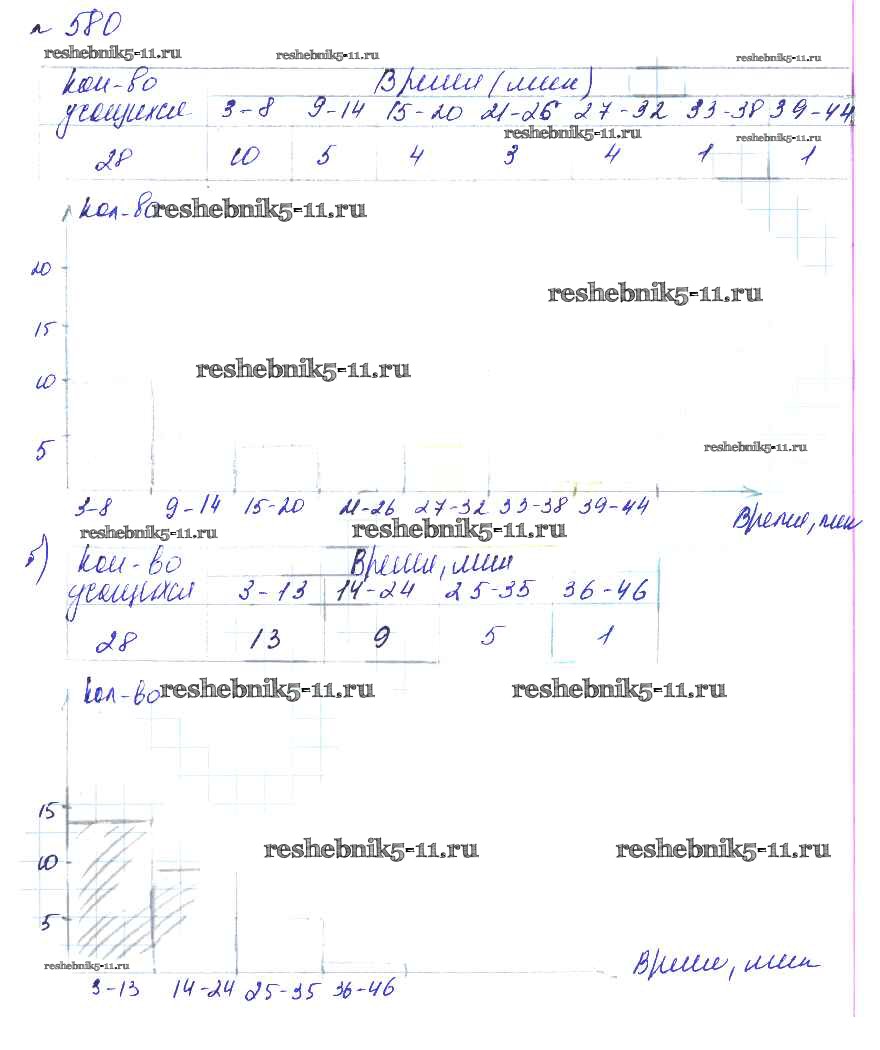 № 580
reshebnik5-11.ru reshebnik5-11.ru reshebnik5-11.ru
Кол-во Время (мин)
учащихся 3-8 9-14 15-20 21-26 27-32 33-38 39-44
reshebnik5-11.ru reshebnik5-11.ru
28 10 5 4 3 4 1 1
кол-во reshebnik5-11.ru
20
reshebnik5-11.ru
15
reshebnik5-11.ru
10
5 reshebnik5-11.ru
3-8 9-14 15-20 21-26 27-32 33-38 39-44
Время, мин
reshebnik5-11.ru reshebnik5-11.ru
б) Кол-во Время, мин
учащихся 3-13 14-24 25-35 36-46
28 13 9 5 1
кол-во reshebnik5-11.ru reshebnik5-11.ru
15
reshebnik5-11.ru reshebnik5-11.ru
10
5
reshebnik5-11.ru Время, мин
3-13 14-24 25-35 36-46